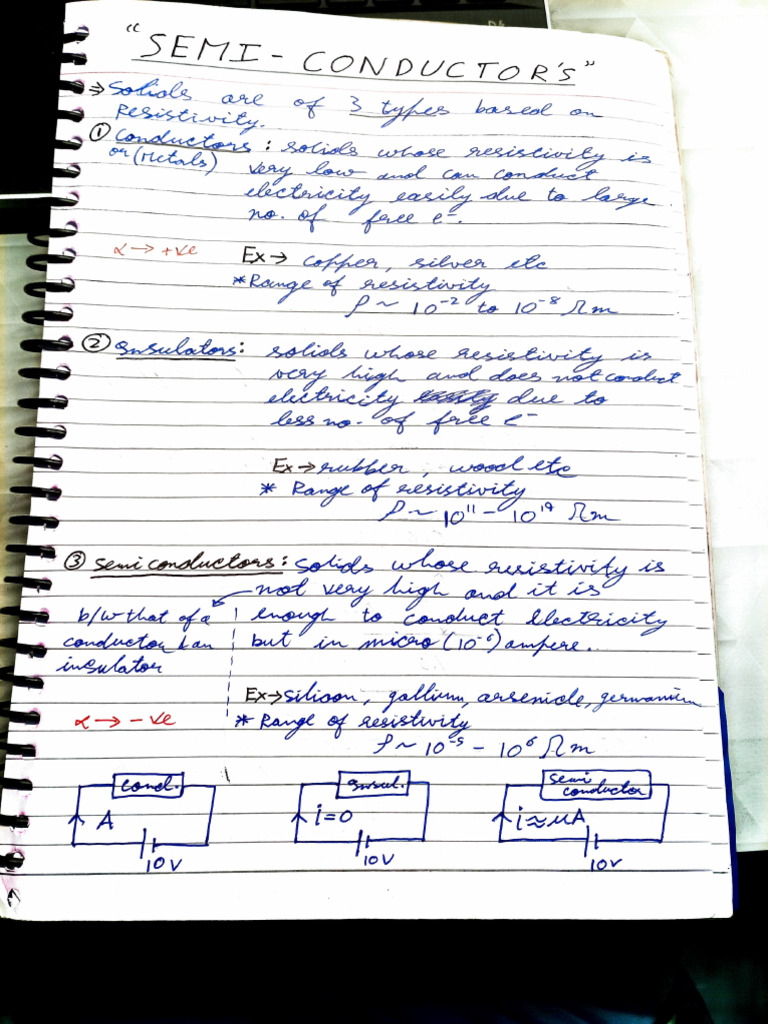 "SEMI-CONDUCTOR'S"
⇒ Solids are of 3 types based on
Resistivity.
① Conductors : solids whose resistivity is
or (Metals) very low and can conduct
electricity easily due to large
no. of free e⁻.
α → +ve Ex → copper, silver etc
* Range of resistivity
ρ ~ 10⁻² to 10⁻⁸ Ωm
② Insulators: solids whose resistivity is
very high and does not conduct
electricity due to
less no. of free e⁻
Ex → rubber, wood etc
* Range of resistivity
ρ ~ 10¹¹ - 10¹⁹ Ωm
③ Semiconductors: Solids whose resistivity is
not very high and it is
b/w that of a enough to conduct Electricity
conductor & an but in micro (10⁻⁶) ampere.
insulator
Ex → silicon, gallium, arsenide, germanium
α → -ve * Range of resistivity
ρ ~ 10⁻⁵ - 10⁶ Ωm
cond. Insul. semi
conductor
A i=0 i≈μA
10V 10V 10V